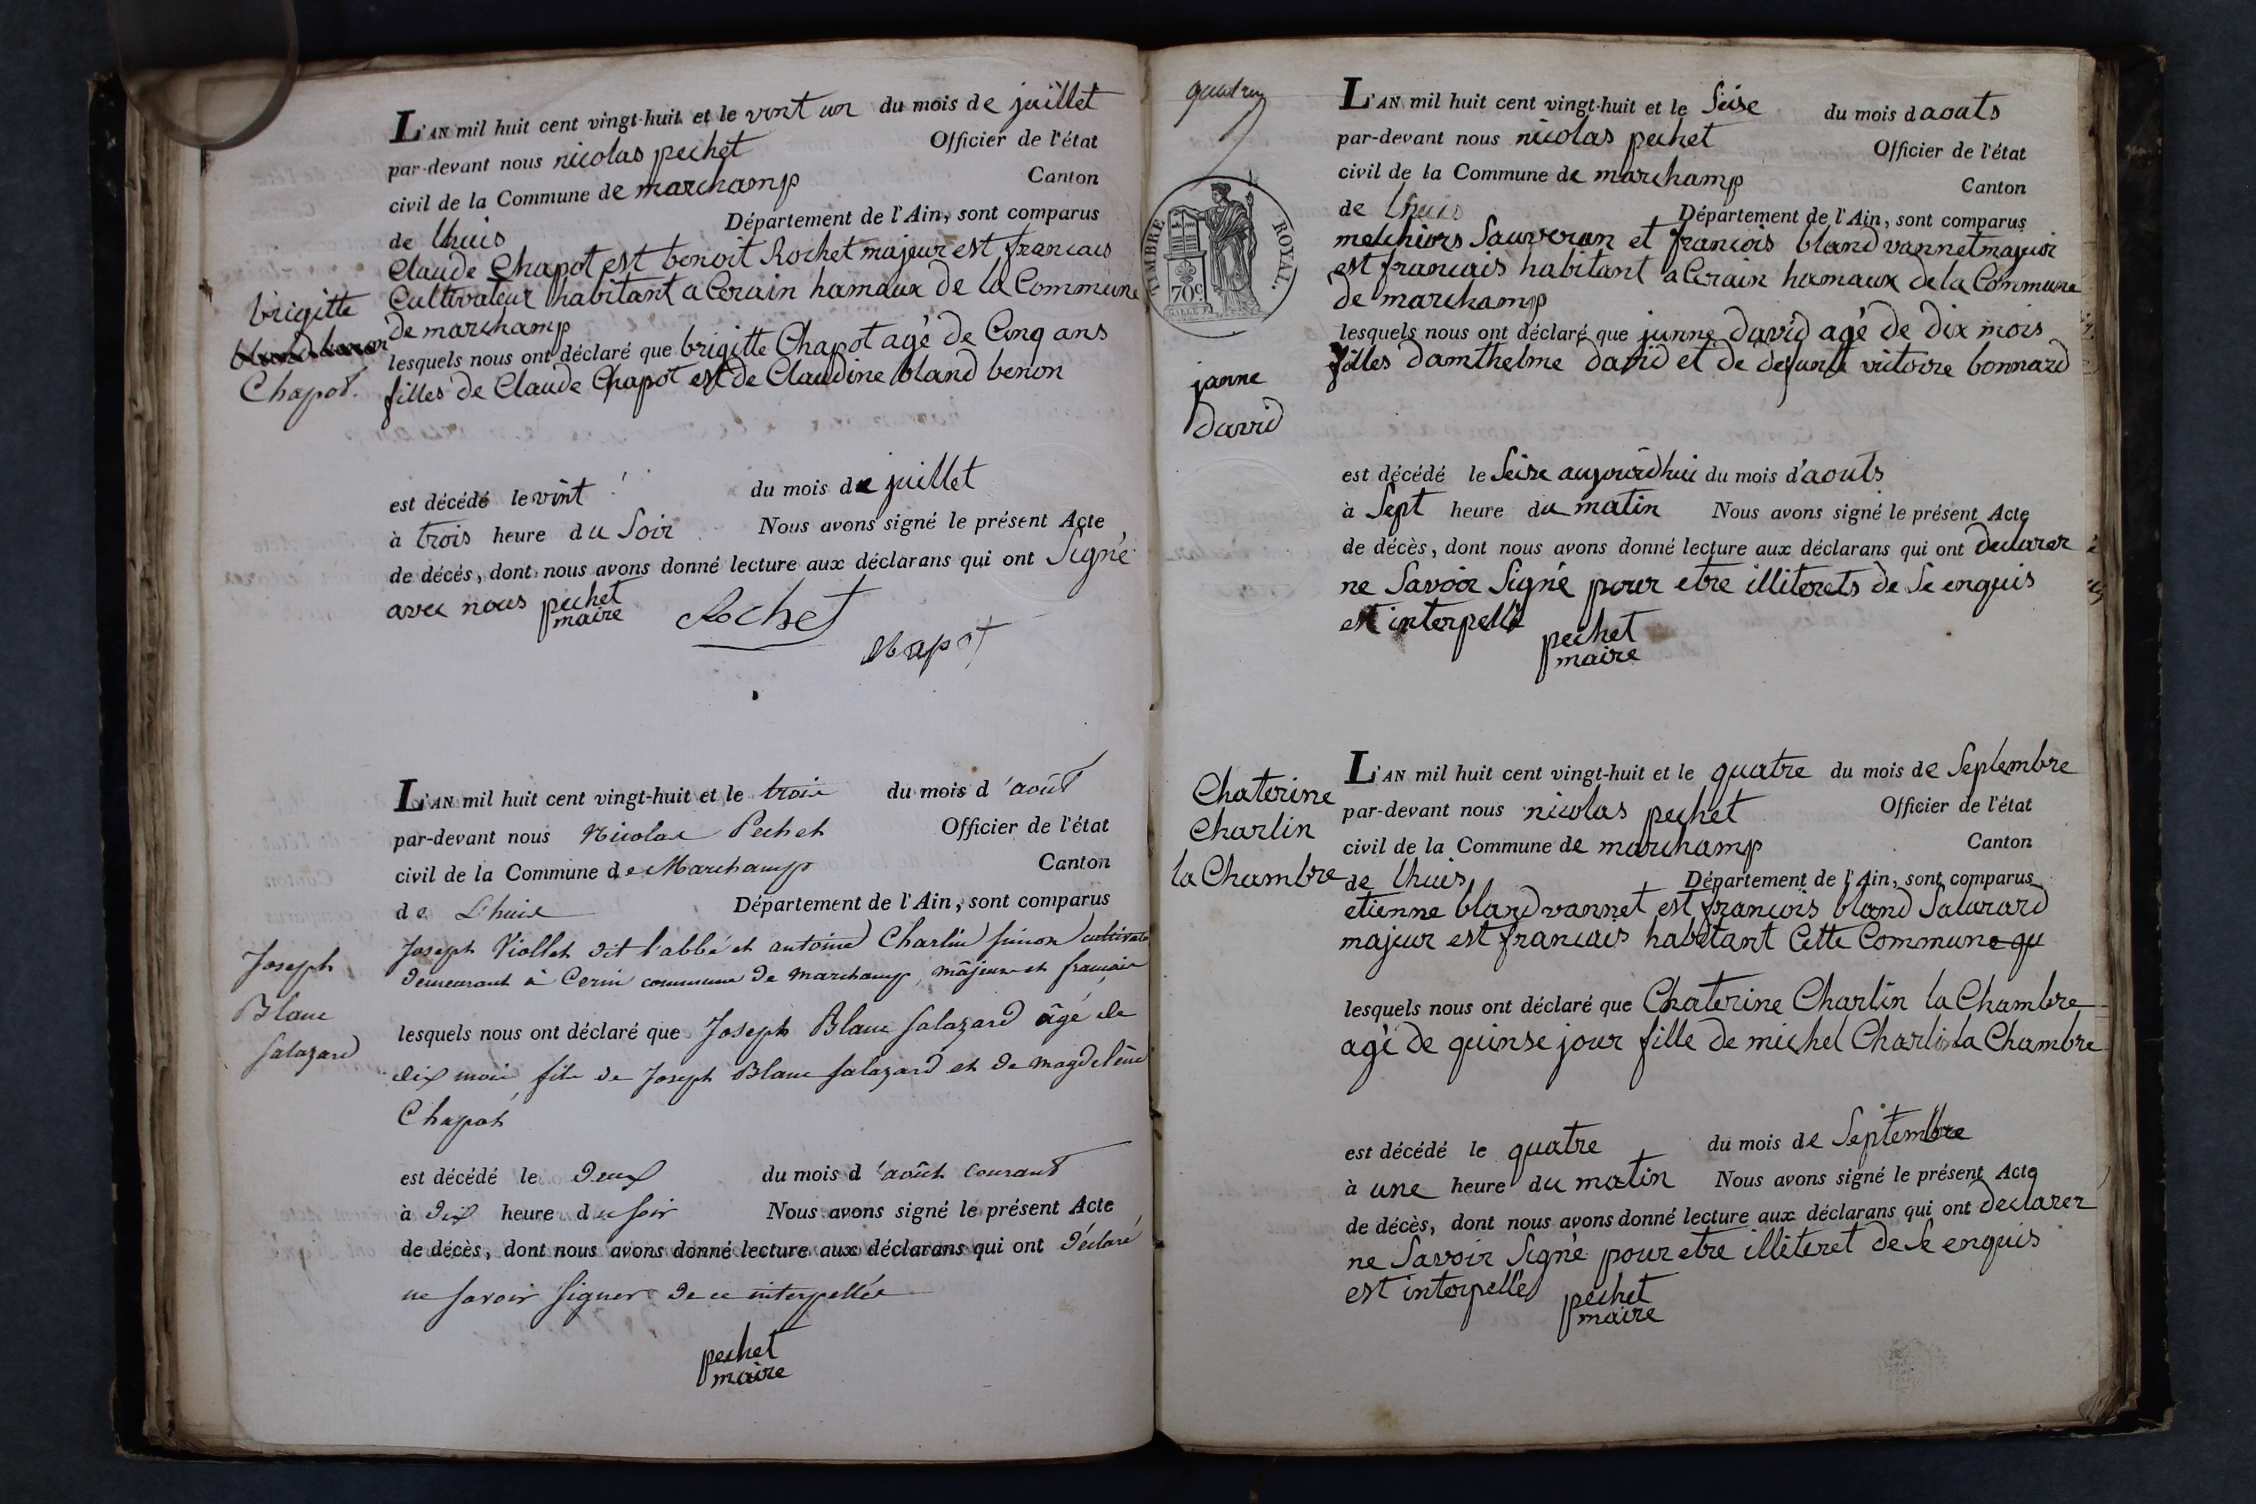 L'AN mil huit cent vingt-huit et le vint un du mois de juillet
par-devant nous nicolas pechet Officier de l'état
civil de la Commune de marchamp Canton
de lhuis Département de l'Ain, sont comparus
Claude Chapot est benoit Rochet majeur est francais
Cultivateur habitant a Cerain hamaux de la Commune
de marchamp
lesquels nous ont déclaré que brigitte Chapot agé de Cinq ans
filles de Claude Chapot est de Claudine bland benon
brigitte
Chapot.
est décédé le vint du mois de juillet
à trois heure du Soir Nous avons signé le présent Acte
de décés, dont nous avons donné lecture aux déclarans qui ont Signé
avec nous pechet
maire
Rochet
Chapot
L'AN mil huit cent vingt-huit et le trois du mois d'août
par-devant nous Nicolas Pechet Officier de l'état
civil de la Commune de Marchamp Canton
de Lhuis Département de l'Ain, sont comparus
Joseph Viollet dit l'abbé et antoine Charlin simon cultivate
demeurant à Cerin commune de marchamp, majeurs et français
lesquels nous ont déclaré que Joseph Blanc Salazard âgé de
dix mois fils de Joseph Blanc Salazard et de magdeléne
Chapot
Joseph
Blanc
Salazard
est décédé le deux du mois d'août courant
à dix heure du soir Nous avons signé le présent Acte
de décès, dont nous avons donné lecture aux déclarans qui ont déclaré
ne savoir signer de ce interpellés
pechet
maire
TIMBRE ROYAL.
70c
L'AN mil huit cent vingt-huit et le Seise du mois daoats
par-devant nous nicolas pechet Officier de l'état
civil de la Commune de marchamp Canton
de lhuis Département de l'Ain, sont comparus
melchiors Sauveran et francois bland vannet majeur
est francais habitant a Cerain hamaux de la Commune
de marchamp
lesquels nous ont déclaré que janne david agé de dix mois
filles damthelme david et de defunte victoire bonnard
janne
david
est décédé le Seise aujourdhui du mois d'aouts
à Sept heure du matin Nous avons signé le présent Acte
de décès, dont nous avons donné lecture aux déclarans qui ont declarer
ne Savoir Signé pour etre illiterets de Se enquis
est interpellé
pechet
maire
L'AN mil huit cent vingt-huit et le quatre du mois de Septembre
par-devant nous nicolas pechet Officier de l'état
civil de la Commune de marchamp Canton
de lhuis Département de l'Ain, sont comparus
etienne bland vannet est francois bland Salazard
majeur est francais habitant Cette Commune qu
Chaterine
Charlin
la Chambre
lesquels nous ont déclaré que Chaterine Charlin la Chambre
agé de quinse jour fille de michel Charlin la Chambre
est décédé le quatre du mois de Septembre
à une heure du matin Nous avons signé le présent Acte
de décès, dont nous avons donné lecture aux déclarans qui ont declarer
ne Savoir Signé pour etre illiteret de Se enquis
est interpellé
pechet
maire